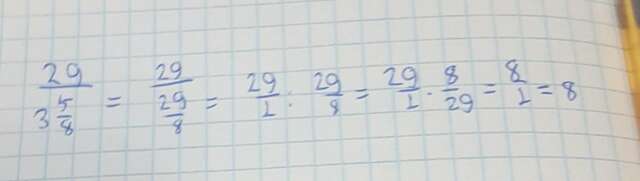 29/(3 5/8) = 29/(29/8) = 29/1 : 29/8 = 29/1 · 8/29 = 8/1 = 8